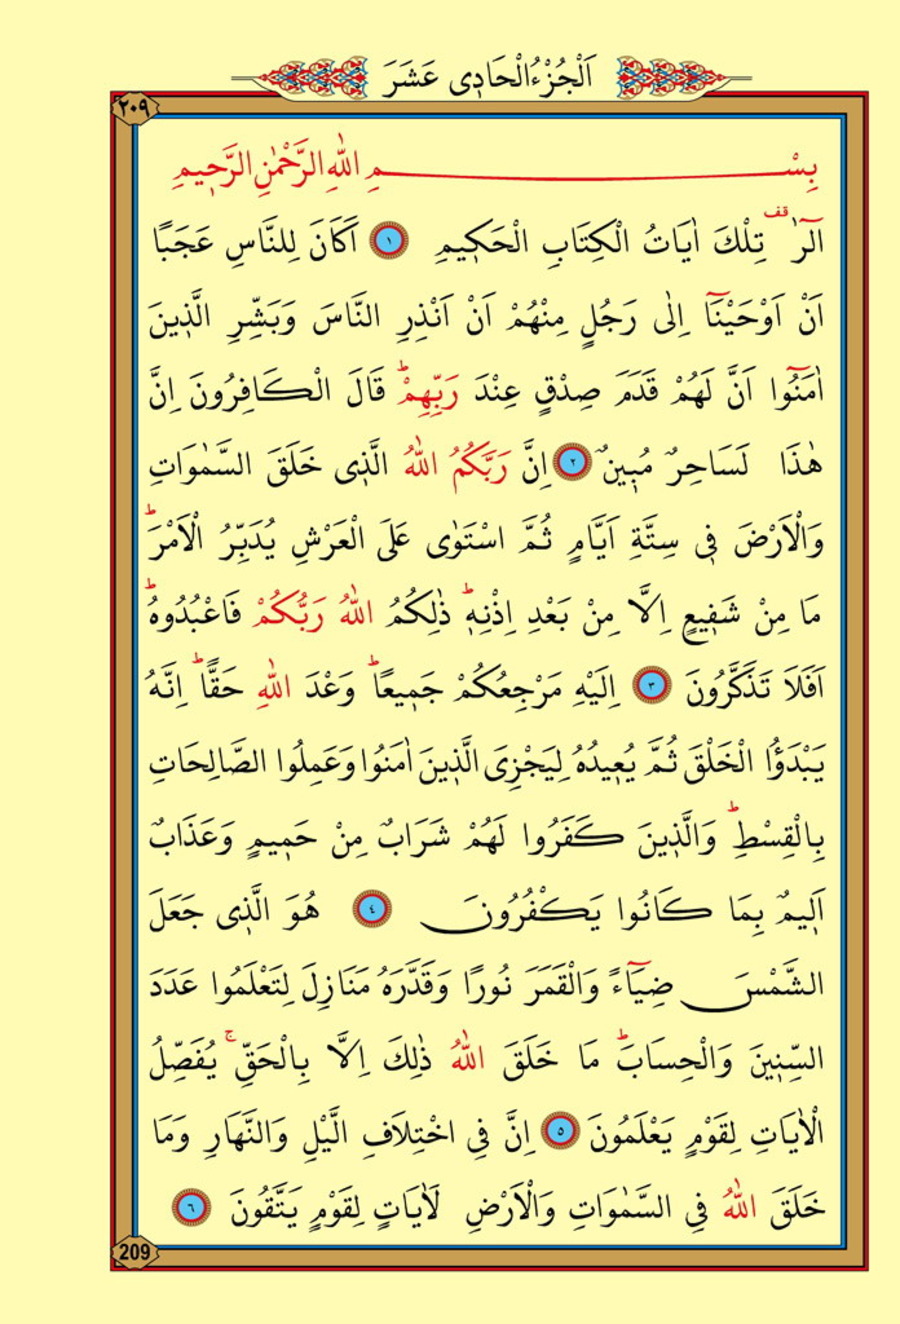 اَلْجُزْءُ الْحَادِى عَشَرَ
٢٠٩
بِسْمِ اللّٰهِ الرَّحْمٰنِ الرَّحِيمِ
الٓرٰ قف تِلْكَ اٰيَاتُ الْكِتَابِ الْحَكِيمِ ١ اَكَانَ لِلنَّاسِ عَجَبًا
اَنْ اَوْحَيْنَٓا اِلٰى رَجُلٍ مِنْهُمْ اَنْ اَنْذِرِ النَّاسَ وَبَشِّرِ الَّذِينَ
اٰمَنُٓوا اَنَّ لَهُمْ قَدَمَ صِدْقٍ عِنْدَ رَبِّهِمْۜ قَالَ الْكَافِرُونَ اِنَّ
هٰذَا لَسَاحِرٌ مُبِينٌ ٢ اِنَّ رَبَّكُمُ اللّٰهُ الَّذِى خَلَقَ السَّمٰوَاتِ
وَالْاَرْضَ فِى سِتَّةِ اَيَّامٍ ثُمَّ اسْتَوٰى عَلَى الْعَرْشِ يُدَبِّرُ الْاَمْرَۜ
مَا مِنْ شَفِيعٍ اِلَّا مِنْ بَعْدِ اِذْنِهِۜ ذٰلِكُمُ اللّٰهُ رَبُّكُمْ فَاعْبُدُوهُۜ
اَفَلَا تَذَكَّرُونَ ٣ اِلَيْهِ مَرْجِعُكُمْ جَمِيعًاۜ وَعْدَ اللّٰهِ حَقًّاۜ اِنَّهُ
يَبْدَؤُا الْخَلْقَ ثُمَّ يُعِيدُهُ لِيَجْزِىَ الَّذِينَ اٰمَنُوا وَعَمِلُوا الصَّالِحَاتِ
بِالْقِسْطِۜ وَالَّذِينَ كَفَرُوا لَهُمْ شَرَابٌ مِنْ حَمِيمٍ وَعَذَابٌ
اَلِيمٌ بِمَا كَانُوا يَكْفُرُونَ ٤ هُوَ الَّذِى جَعَلَ
الشَّمْسَ ضِيَٓاءً وَالْقَمَرَ نُورًا وَقَدَّرَهُ مَنَازِلَ لِتَعْلَمُوا عَدَدَ
السِّنِينَ وَالْحِسَابَۜ مَا خَلَقَ اللّٰهُ ذٰلِكَ اِلَّا بِالْحَقِّۚ يُفَصِّلُ
الْاٰيَاتِ لِقَوْمٍ يَعْلَمُونَ ٥ اِنَّ فِى اخْتِلَافِ الَّيْلِ وَالنَّهَارِ وَمَا
خَلَقَ اللّٰهُ فِى السَّمٰوَاتِ وَالْاَرْضِ لَاٰيَاتٍ لِقَوْمٍ يَتَّقُونَ ٦
209